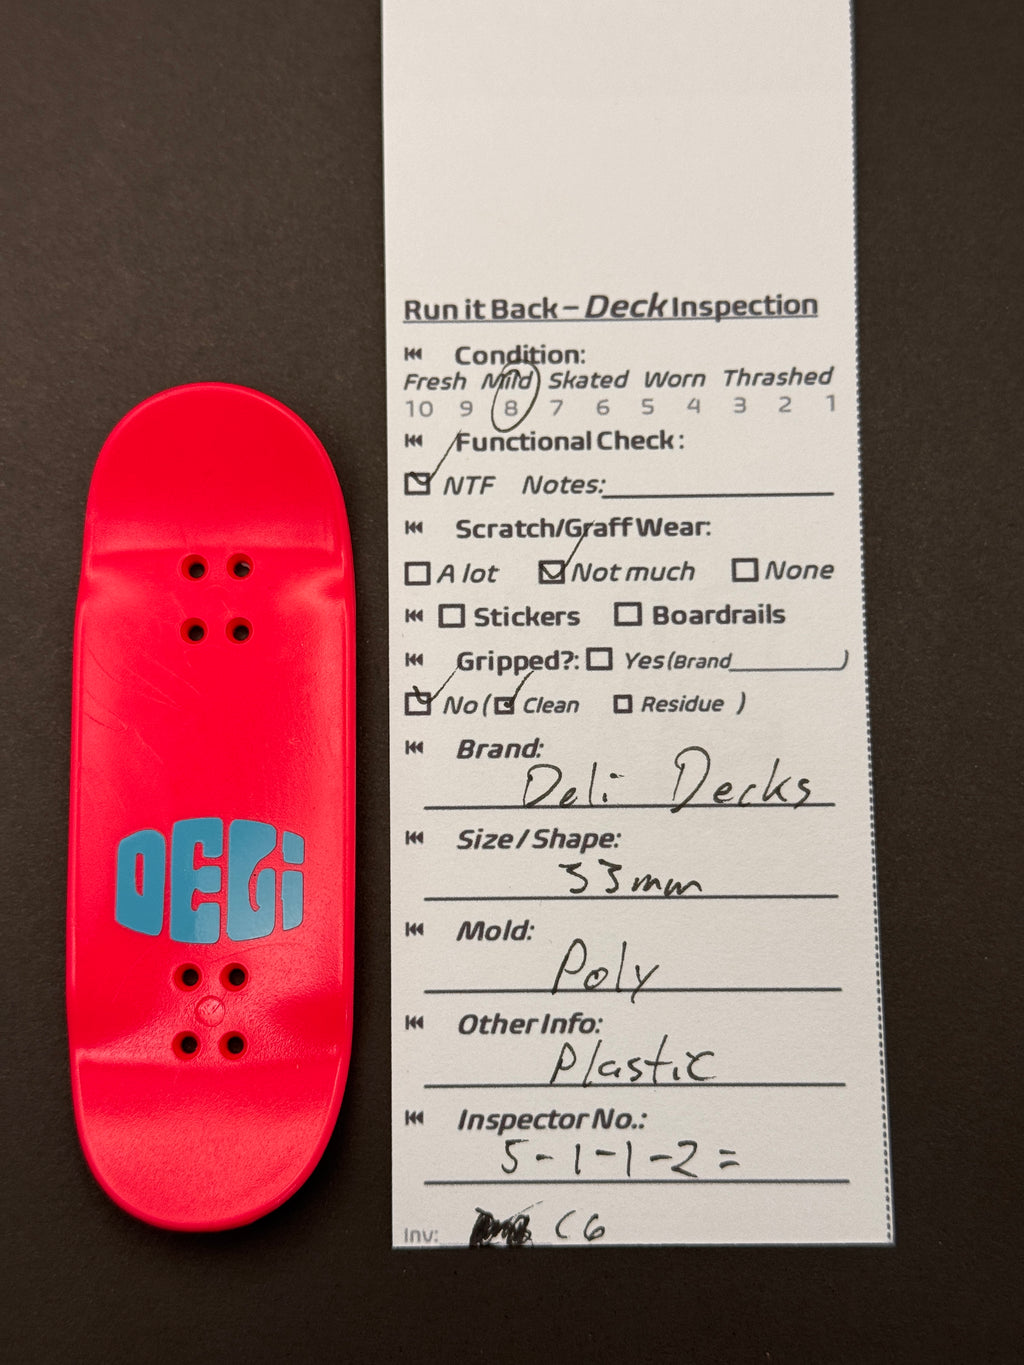 Run it Back – Deck Inspection
Condition:
Fresh Mild Skated Worn Thrashed
10 9 8 7 6 5 4 3 2 1
Functional Check:
NTF Notes:
Scratch/Graff Wear:
A lot Not much None
Stickers Boardrails
Gripped?: Yes (Brand )
No ( Clean Residue )
Brand:
Deli Decks
Size / Shape:
33mm
Mold:
Poly
Other Info:
Plastic
Inspector No.:
5-1-1-2=
Inv: C6
DELi